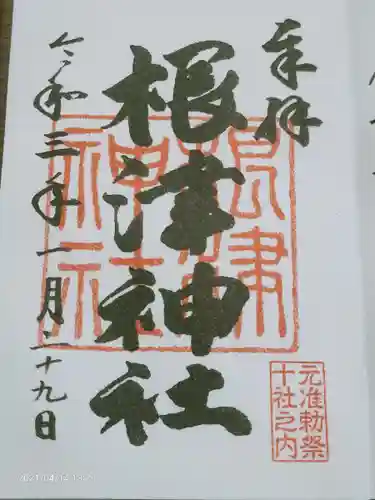 奉拝
根津神社
令和三年一月二十九日
根津神社
元准勅祭
十社之内